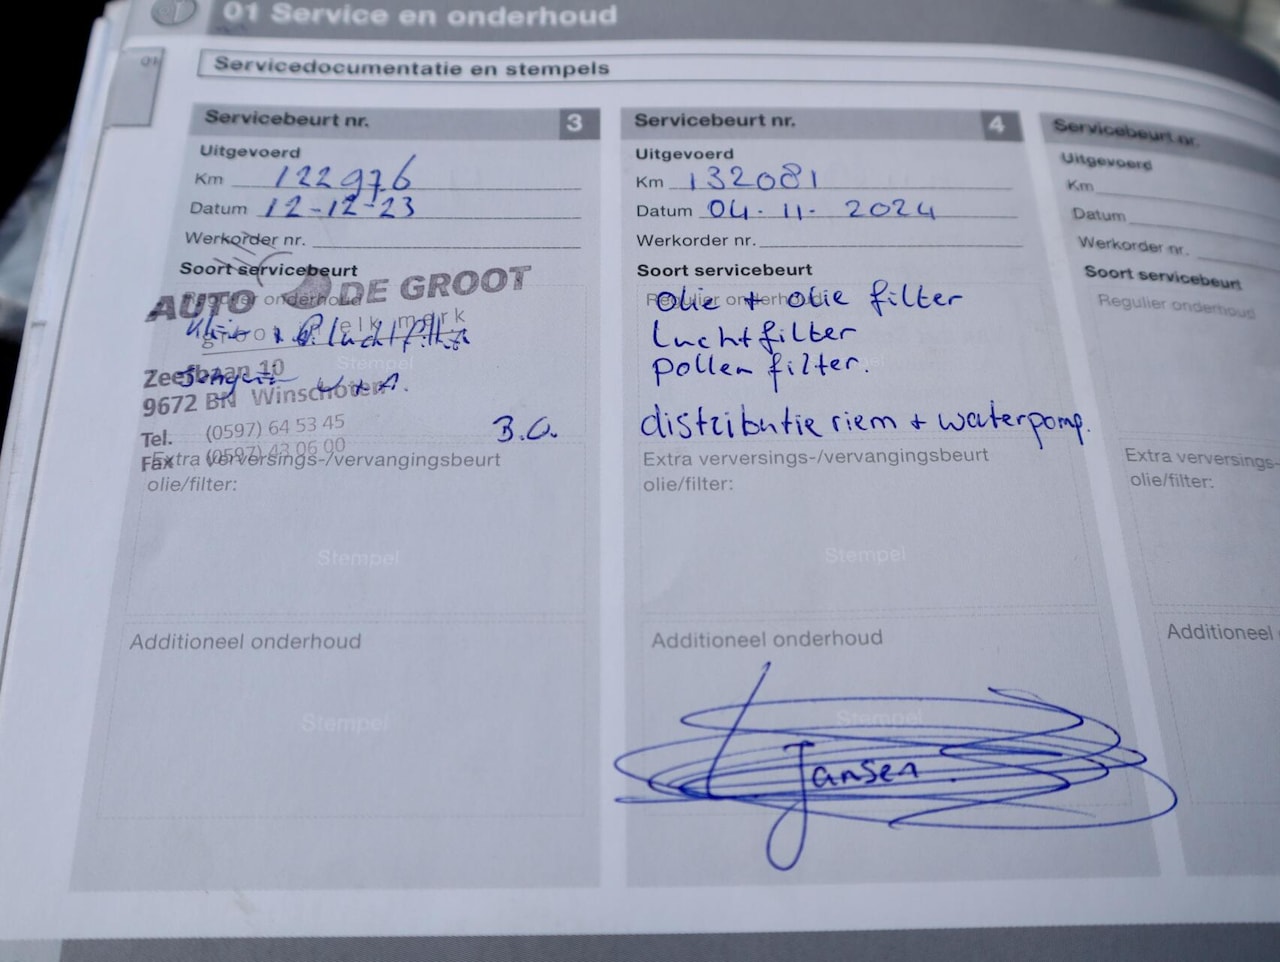 01 Service en onderhoud
01
Servicedocumentatie en stempels
Servicebeurt nr. 3
Uitgevoerd
Km 122976
Datum 12-12-23
Werkorder nr.
Soort servicebeurt
Regulier onderhoud
AUTO DE GROOT
groot elk merk
luchtfilter
Stempel
Zeefbaan 10
9672 BN Winschoten
Tel. (0597) 64 53 45
Fax (0597) 43 06 00
B.O.
Extra verversings-/vervangingsbeurt
olie/filter:
Stempel
Additioneel onderhoud
Stempel
Servicebeurt nr. 4
Uitgevoerd
Km 132081
Datum 04-11-2024
Werkorder nr.
Soort servicebeurt
Regulier onderhoud
olie + olie filter
luchtfilter
pollen filter.
distributie riem + waterpomp.
Extra verversings-/vervangingsbeurt
olie/filter:
Stempel
Additioneel onderhoud
Stempel
Jansen.
Servicebeurt nr.
Uitgevoerd
Km
Datum
Werkorder nr.
Soort servicebeurt
Regulier onderhoud
Extra verversings-
olie/filter:
Additioneel